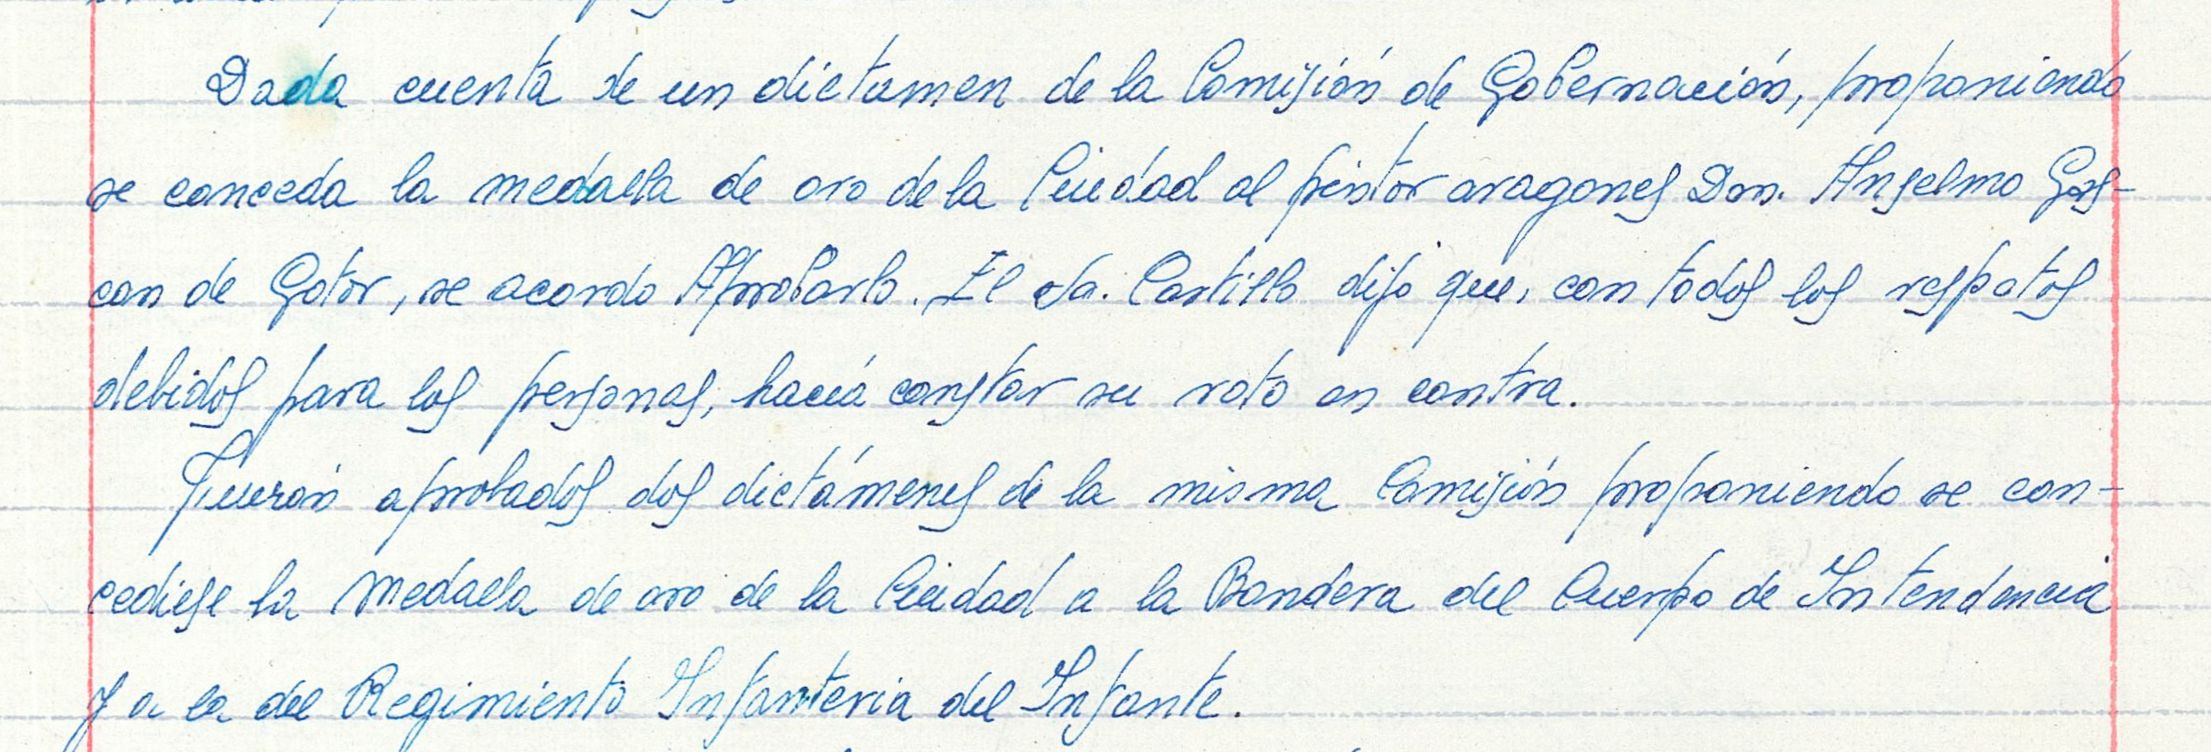 Dada cuenta de un dictamen de la Comisión de Gobernación, proponiendo
se conceda la medalla de oro de la Ciudad al pintor aragones Don. Anselmo Gas-
con de Gotor, se acordo Aprobarlo. El Sr. Castillo dijo que, con todos los respetos
debidos para las personas, hacía constar su voto en contra.
Fueron aprobados dos dictámenes de la misma Comisión proponiendo se con-
cediese la Medalla de oro de la Ciudad a la Bandera del Cuerpo de Intendencia
y a la del Regimiento Infanteria del Infante.